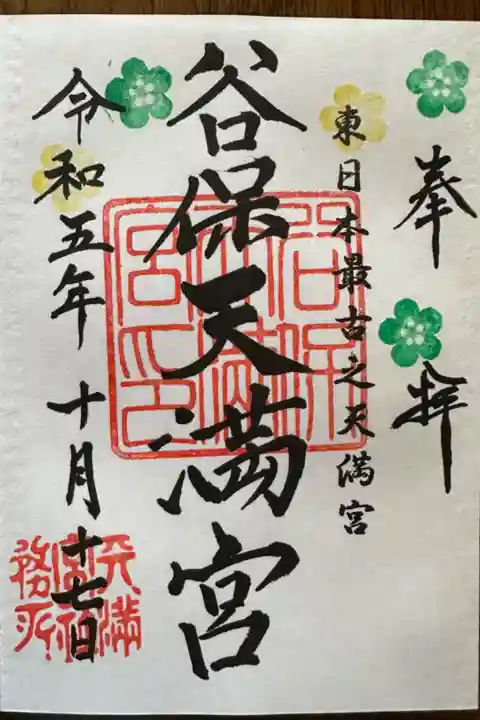 奉拝
東日本最古之天満宮
谷保天満宮
令和五年 十月十七日
谷保天満宮印